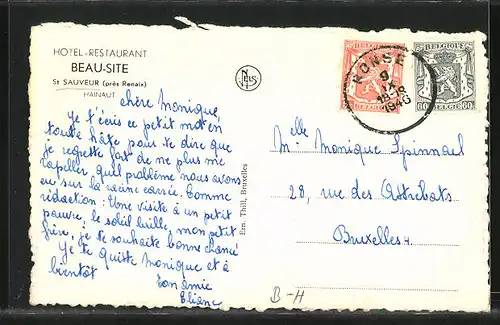 HOTEL-RESTAURANT
BEAU-SITE
St SAUVEUR (près Renaix)
HAINAUT
Chère Monique,
Je t'écris ce petit mot en
toute hâte pour te dire que
je regrette fort de ne plus me
rapeller quel problème nous avons
eu sur la racine carrée. Comme
rédaction: Une visite à un petit
pauvre, le soleil brille, mon petit
frère, je te souhaite bonne chance
Je te quitte Monique et à
bientôt
Ton amie
Eliane
NELS
Ern. Thill, Bruxelles
BELGIQUE
BELGIE
BELGIQUE
60 BELGIE 60
RONSE
9
IX
18
1946
Melle Monique Spinnael
28, rue des Attrebats
Bruxelles 4
B-H